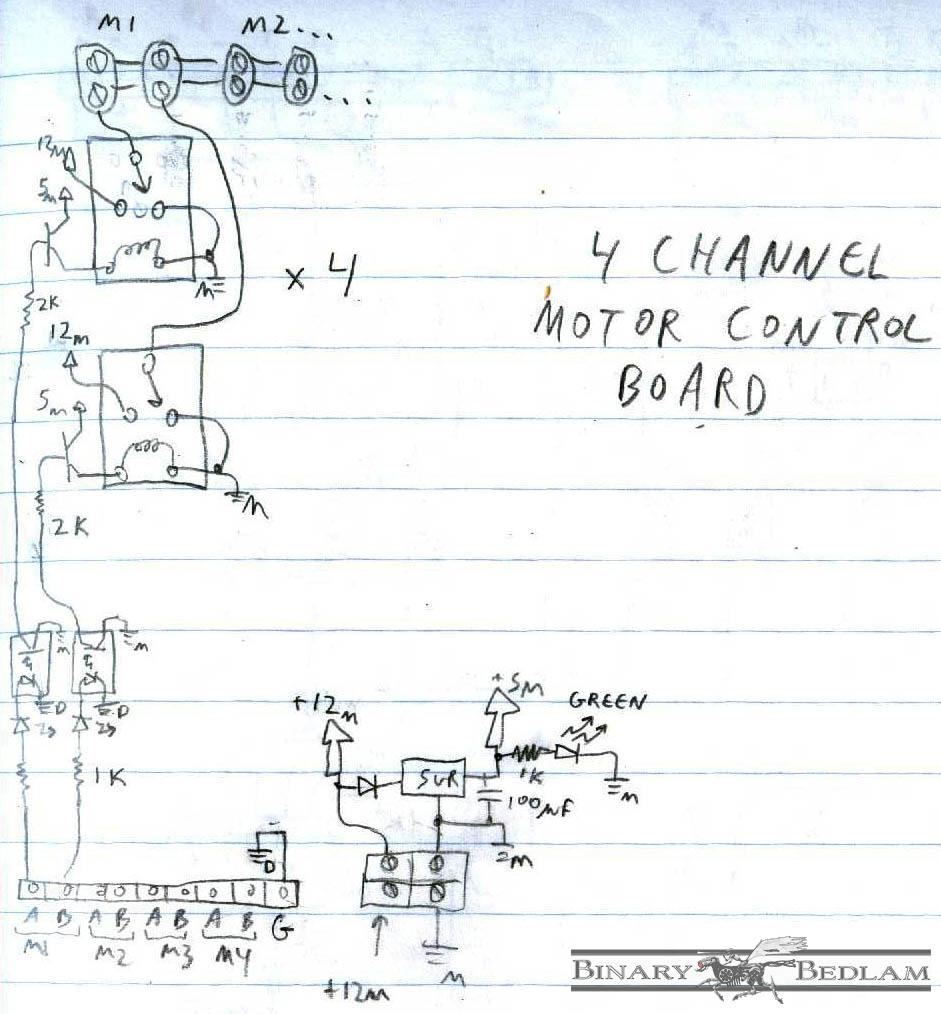 M1
M2...
...
12M
5M
x 4
M
2K
4 CHANNEL
MOTOR CONTROL
BOARD
12M
5M
M
2K
M
M
D
D
1K
+12M
+5M
GREEN
5VR
1K
100µF
M
M
D
A B A B A B A B G
M1 M2 M3 M4
+12M
M
BINARY BEDLAM